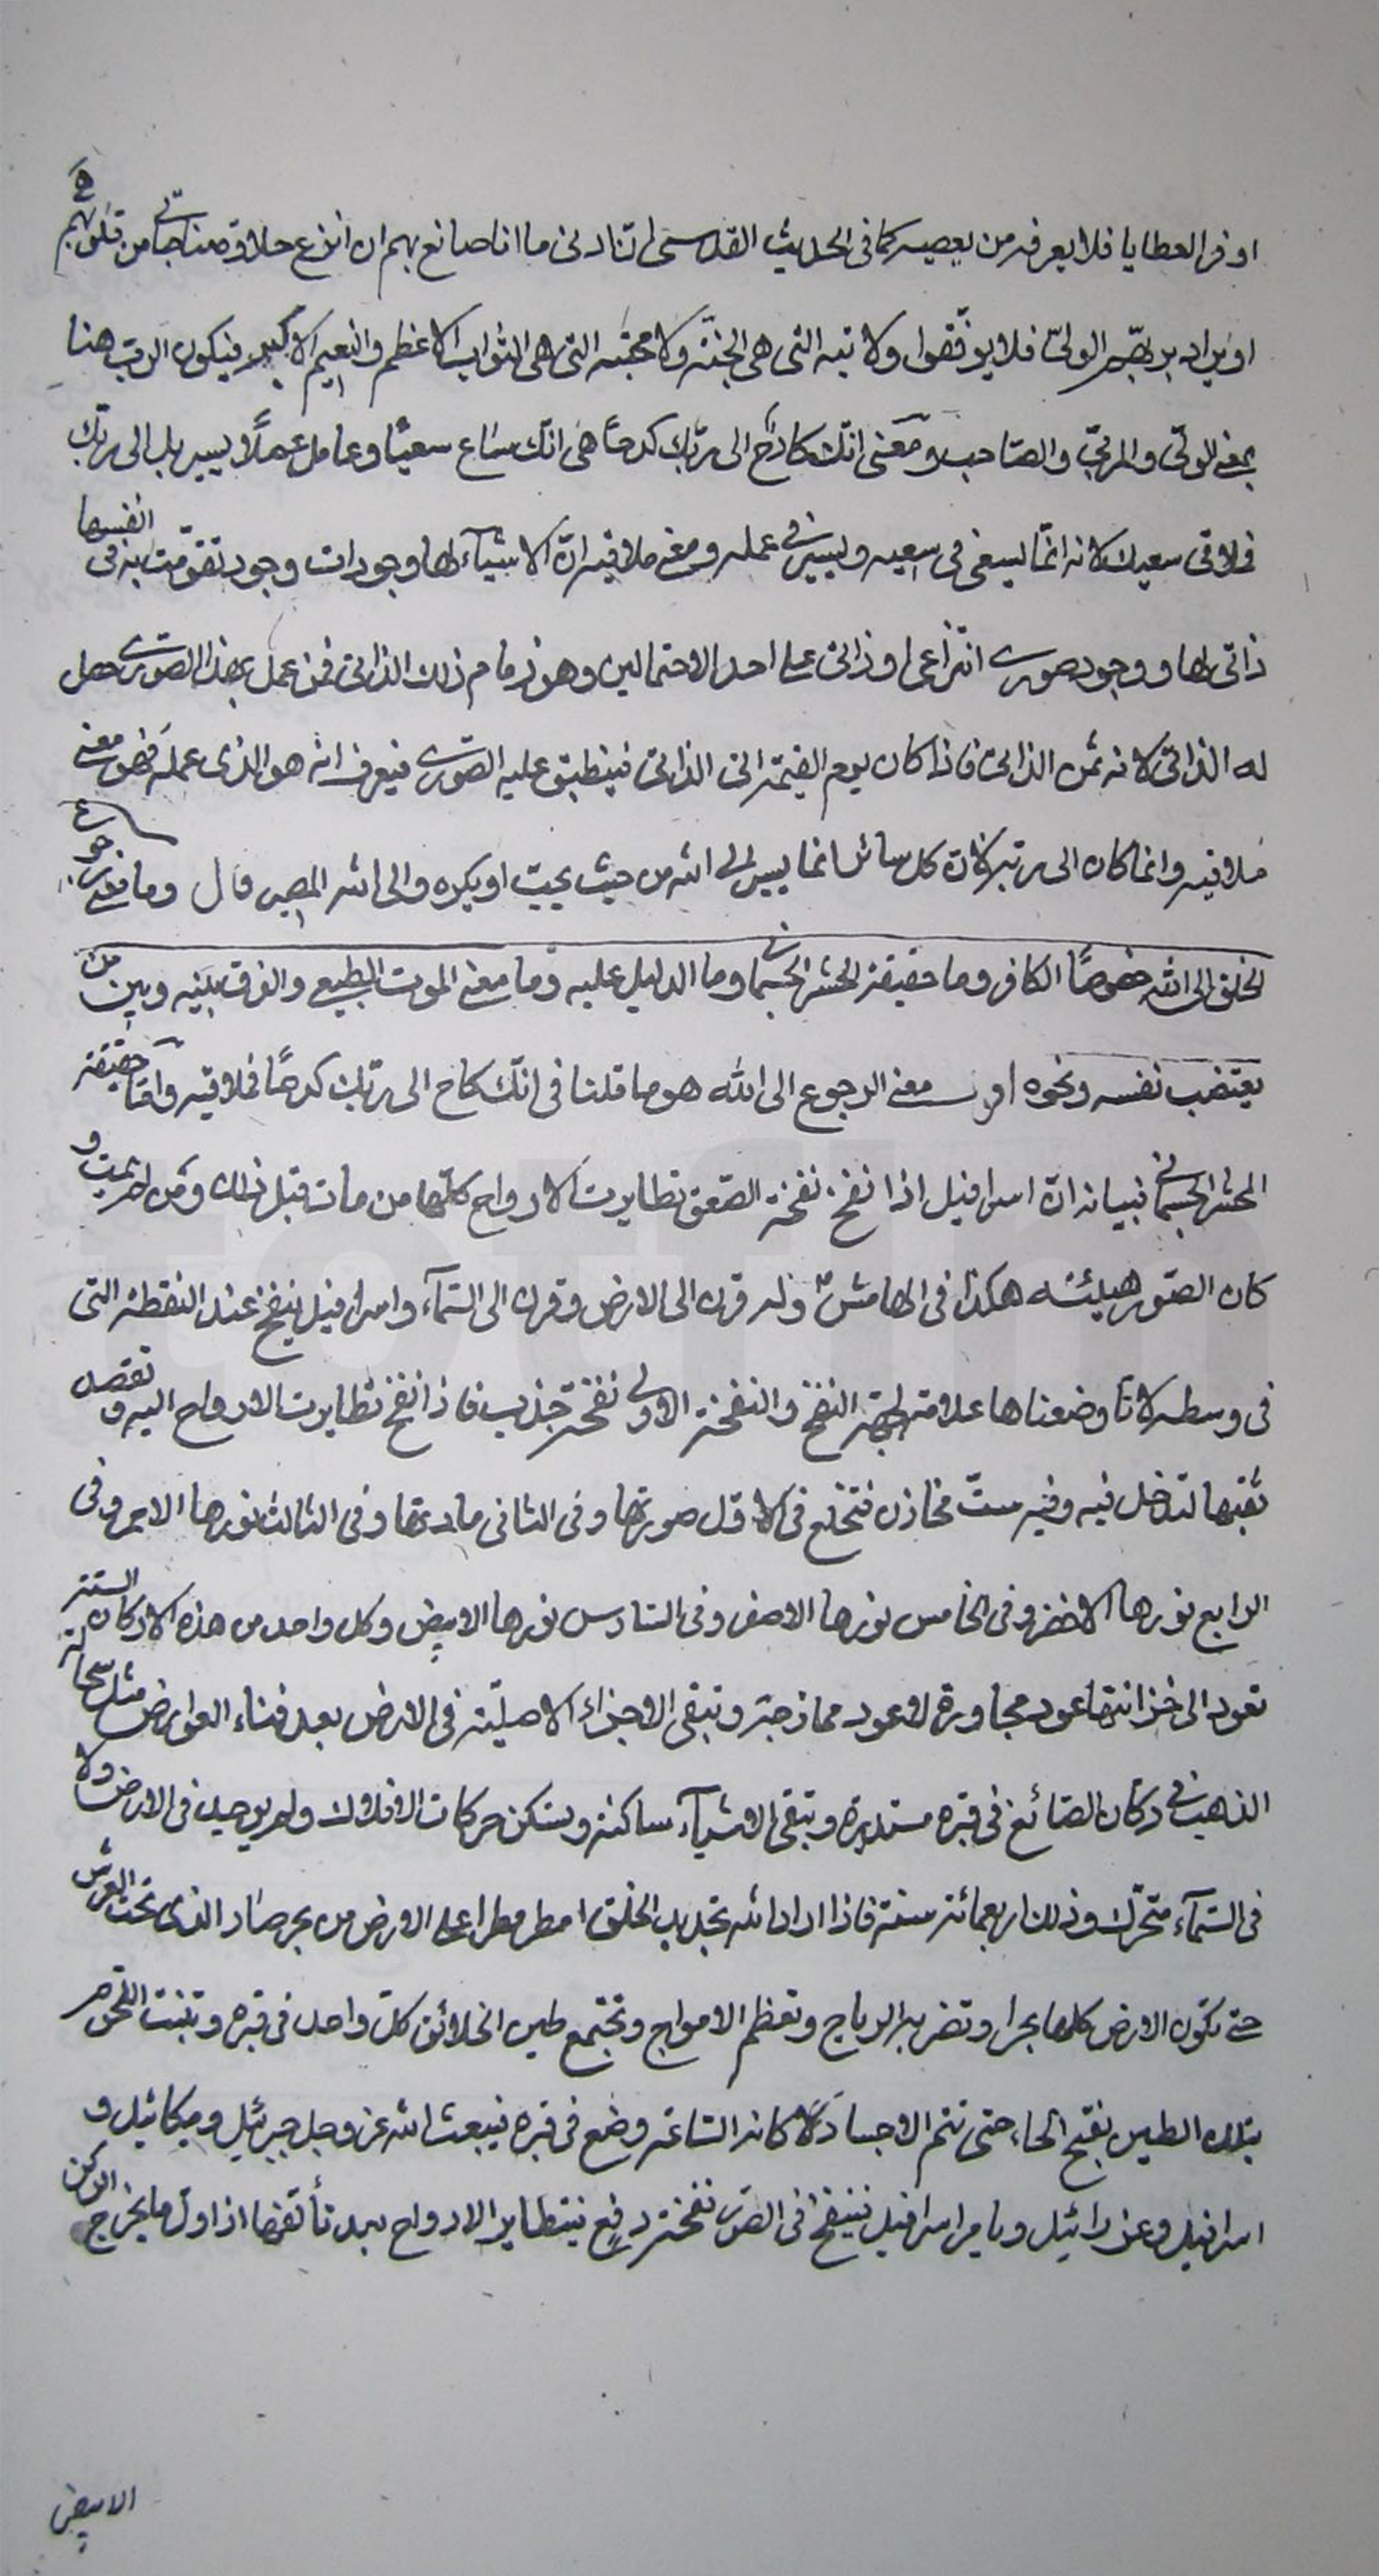 او فر العطايا فلا يعرفه من يعصيه كما فى الحديث القدسى ان ادنى ما انا صانع بهم ان انزع حلاوة مناجاتى من قلوبهم
او يراد بربهم الولى فلا يوفقوا ولايته التى هى الجنة ولا محبته التى هى الثواب الاعظم والنعيم الاكبر فيكون الرب هنا
بمعنى الولى والمربى والصاحب ومعنى انك كادح الى ربك كدحًا هى انك ساع سعيًا وعامل عملًا يسير بك الى ربك
فملاقى سعيك لانه انما يسعى فى سعيه ويسير فى عمله ومعنى ملاقيه ان الاشيآء لها وجودات وجود تقومت به فى انفسها
ذاتى لها ووجود صورى انتزاعى او ذاتى على احد الاحتمالين وهو زمام ذلك الذاتى فمن عمل بهذا الصورى حصل
له الذاتى لانه ثمن الذاتى فاذا كان يوم القيمة اتى الذاتى فينطبق عليه الصورى فيعرف انه هو الذى عمله فهو معنى
ملاقيه وانما كان الى ربه لان كل سائر انما يسير الى الله من حيث يحب او يكره والى الله المصير قال وما معنى رجوع
الخلق الى الله خصوصًا الكافر وما حقيقة الحشر الجسمانى وما الدليل عليه وما معنى الموت الطبيعى والفرق بينه وبين من
يغتصب نفسه ونحوه اقول معنى الرجوع الى الله هو ما قلنا فى انك كادح الى ربك كدحًا فملاقيه واما حقيقة
الحشر الجسمانى فبيانه ان اسرافيل اذا نفخ نفخة الصعق تطايرت الارواح كلها من مات قبل ذلك ومن لم يمت و
كان الصور هيئته هكذا فى الهامش وله قرن الى الارض وقرن الى السمآء واسرافيل ينفخ عند النقطة التى
فى وسطه لانا وضعناها علامة لجهة النفخ والنفخة الاولى نفخة جذب فاذا نفخ تطايرت الارواح اليه و تقصد
ثقبها لتدخل فيه وفيه ست مخازن فتخلع فى الاول صورتها وفى الثانى مادتها وفى الثالث نورها الاحمر وفى
الرابع نورها الاخضر وفى الخامس نورها الاصفر وفى السادس نورها الابيض وكل واحد من هذه الاركان الستة
تعود الى خزانتها عود مجاورة لا عود ممازجة وتبقى الاجزاء الاصلية فى الارض بعد فناء العوارض مثل سحالة
الذهب فى دكان الصائغ فى قبره مستديرة وتبقى الاشيآء ساكنة وتسكن حركات الافلاك ولم يوجد فى الارض ولا
فى السمآء متحرك وذلك اربعمائة سنة فاذا اراد الله تجديد الخلق امطر مطرا على الارض من بحر صاد الذى تحت العرش
حتى تكون الارض كلها بحرا وتضربه الرياح وتعظم الامواج وتجتمع طين الخلائق كل واحد فى قبره وتنبت اللحوم
بتلك الطين بفتح الحاء حتى تتم الاجساد كانه الساعة وضع فى قبره فيبعث الله عز وجل جبرئيل وميكائيل و
اسرافيل وعزرائيل ويامر اسرافيل فينفخ فى الصور نفخة دفع فيتطاير الارواح بعد تألفها اذ اول ما يخرج الركن
الابيض